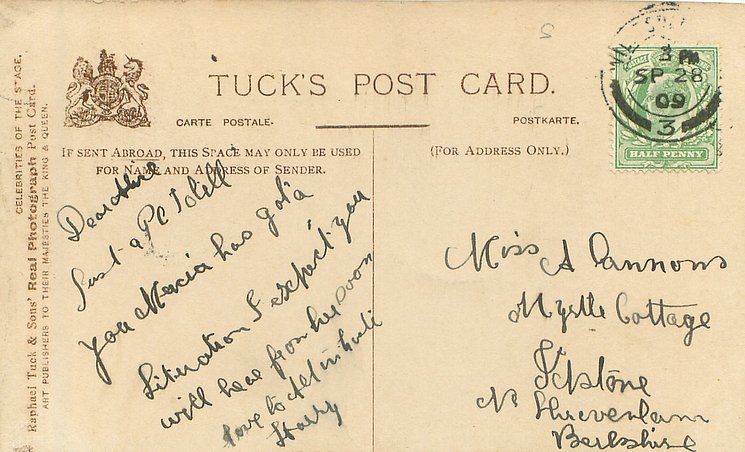 CELEBRITIES OF THE STAGE.
Raphael Tuck & Sons' Real Photograph Post Card.
ART PUBLISHERS TO THEIR MAJESTIES THE KING & QUEEN.
TUCK'S POST CARD.
CARTE POSTALE.
POSTKARTE.
IF SENT ABROAD, THIS SPACE MAY ONLY BE USED
FOR NAME AND ADDRESS OF SENDER.
(FOR ADDRESS ONLY.)
3 PM
SP 28
09
3
HALF PENNY
Dear Alice
Just a PC to tell
you Maria has got a
Situation I expect you
will hear from her soon
love to All
Harry
Miss A Cannons
Myrtle Cottage
Idstone
Nr Shrivenham
Berkshire